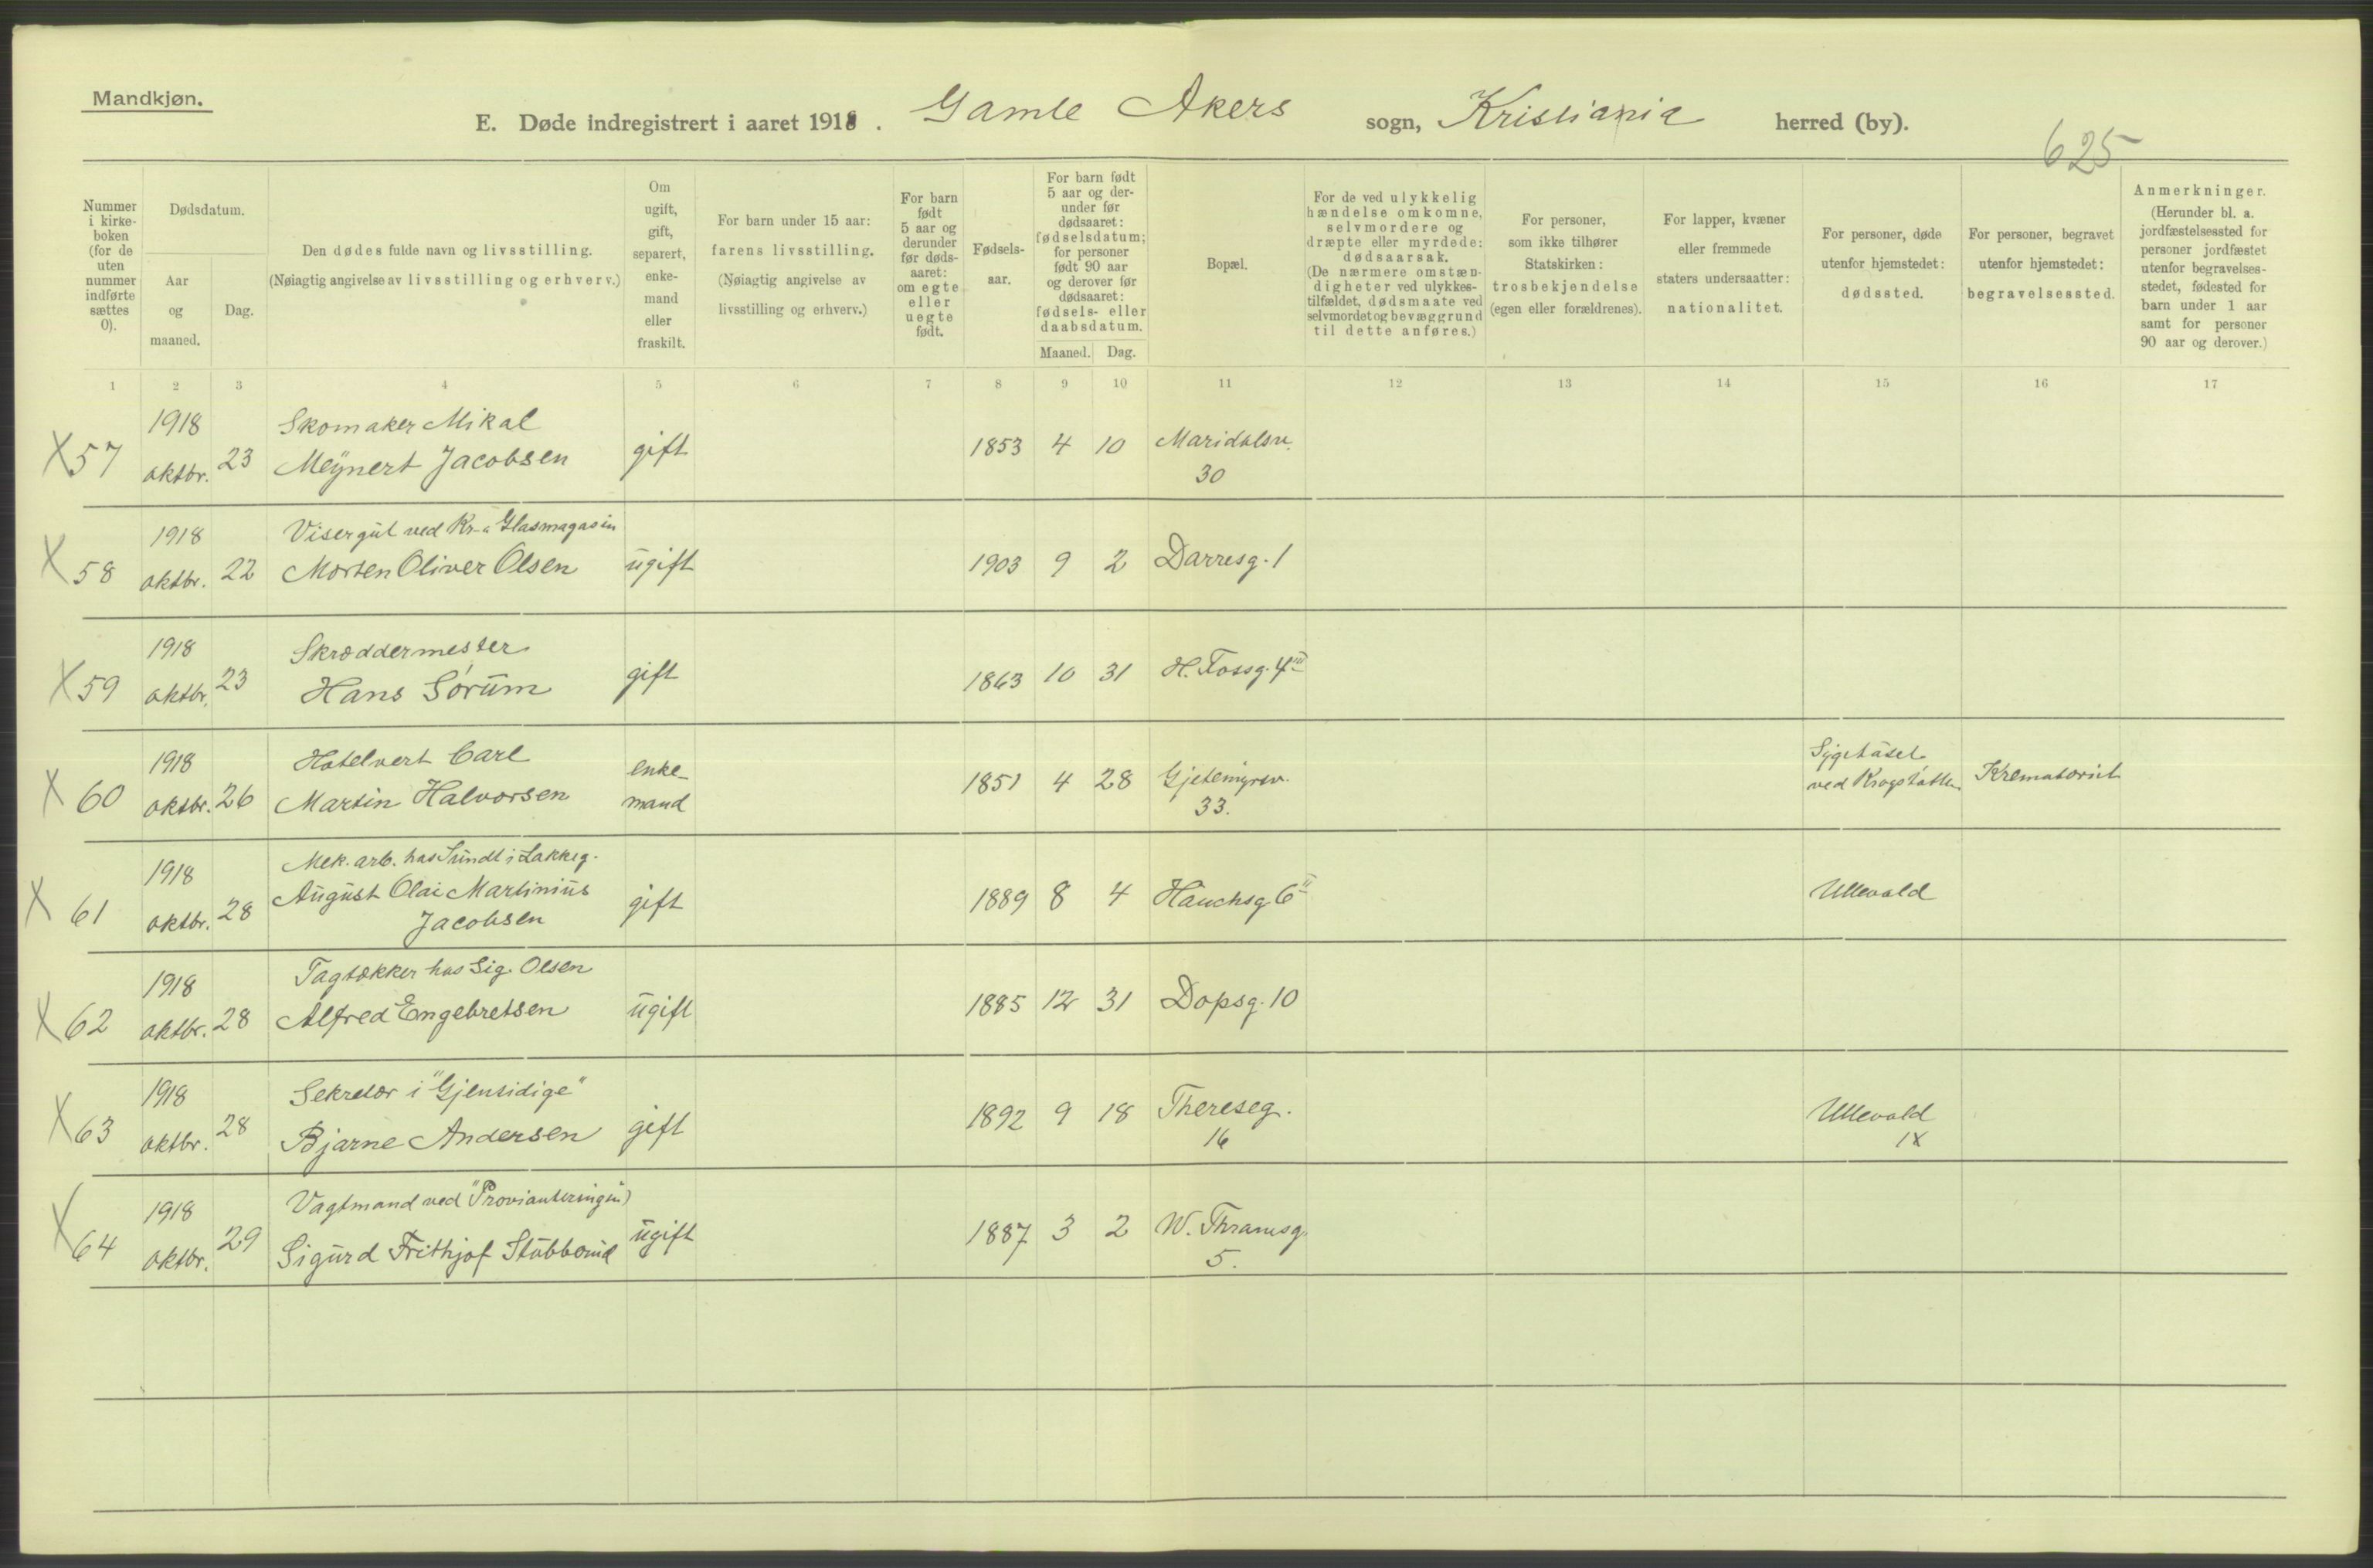 Mandkjøn.
E. Døde indregistrert i aaret 1918. Gamle Akers sogn, Kristiania herred (by).
625
Nummer i kirke-boken (for de uten nummer indførte sættes 0).
Dødsdatum.
Aar og maaned.
Dag.
Den dødes fulde navn og livsstilling.
(Nøiagtig angivelse av livsstilling og erhverv.)
Om ugift, gift, separert, enke-mand eller fraskilt.
For barn under 15 aar:
farens livsstilling.
(Nøiagtig angivelse av livsstilling og erhverv.)
For barn født 5 aar og derunder før døds-aaret: om egte eller uegte født.
Fødsels-aar.
For barn født 5 aar og der-under før dødsaaret: fødselsdatum; for personer født 90 aar og derover før dødsaaret: fødsels- eller daabsdatum.
Maaned. Dag.
Bopæl.
For de ved ulykkelig hændelse omkomne, selvmordere og dræpte eller myrdede: dødsaarsak. (De nærmere omstæn-digheter ved ulykkes-tilfældet, dødsmaate ved selvmordet og bevæggrund til dette anføres.)
For personer, som ikke tilhører Statskirken: trosbekjendelse (egen eller forældrenes).
For lapper, kvæner eller fremmede staters undersaatter: nationalitet.
For personer, døde utenfor hjemstedet: dødssted.
For personer, begravet utenfor hjemstedet: begravelsessted.
Anmerkninger.
(Herunder bl. a. jordfæstelsessted for personer jordfæstet utenfor begravelses-stedet, fødested for barn under 1 aar samt for personer 90 aar og derover.)
1 2 3 4 5 6 7 8 9 10 11 12 13 14 15 16 17
1918 Skomaker Mikal
X 57 oktbr. 23 Meÿnert Jacobsen gift 1853 4 10 Maridalsv.
30
1918 Visergut ved Kr-a Glasmagasin
X 58 oktbr. 22 Morten Oliver Olsen ugift 1903 9 2 Darresg. 1
1918 Skræddermester
X 59 oktbr. 23 Hans Sørum gift 1863 10 31 H. Fossg. 4 III
1918 Hotelvert Carl enke- Sygehuset
X 60 oktbr. 26 Martin Halvorsen mand 1851 4 28 Gjetemyrsv. ved Krogstøtten Krematoriet
33.
1918 Mek. arb. hos Sundt i Lakkeg.
X 61 oktbr. 28 August Olai Martinius gift 1889 8 4 Hauchsg. 6 II Ullevold
Jacobsen
1918 Tagtækker hos Sig. Olsen
X 62 oktbr. 28 Alfred Engebretsen ugift 1885 12 31 Dopsg. 10
1918 Sekretær i "Gjensidige"
X 63 oktbr. 28 Bjarne Andersen gift 1892 9 18 Thereseg. Ullevold
16 IX
1918 Vagtmand ved "Provianteringen"
X 64 oktbr. 29 Sigurd Frithjof Stubberud ugift 1887 3 2 W. Thranesg.
5.